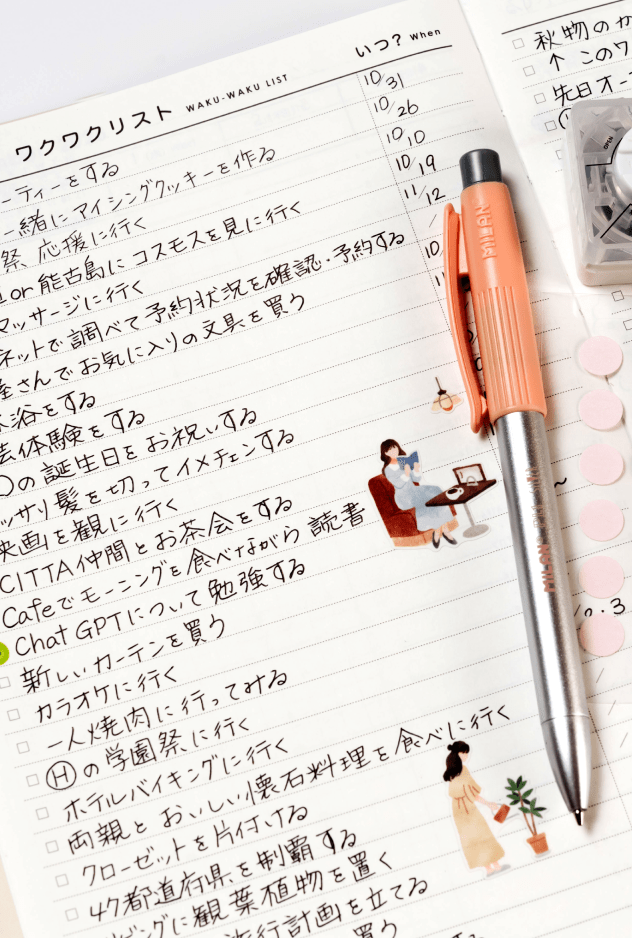 いつ? When
ワクワクリスト WAKU-WAKU LIST
ーティーをする 10/31
一緒にアイシングクッキーを作る 10/26
祭 応援に行く 10/10
or 能古島にコスモスを見に行く 10/19
マッサージに行く 11/12
ネットで調べて予約状況を確認・予約する 10/
屋さんでお気に入りの文具を買う
浴をする
芸体験をする
の誕生日をお祝いする
ッサリ髪を切ってイメチェンする
映画を観に行く
CITTA仲間とお茶会をする
Cafeでモーニングを食べながら読書
Chat GPTについて勉強する
新しいカーテンを買う
カラオケに行く
一人焼肉に行ってみる
Ⓗの学園祭に行く
ホテルバイキングに行く
両親とおいしい懐石料理を食べに行く
クローゼットを片付ける
47都道府県を制覇する
ビングに観葉植物を置く
旅行計画を立てる
買う
MILAN
MILAN
秋物のカ
↑このワ
先日オー
OPEN